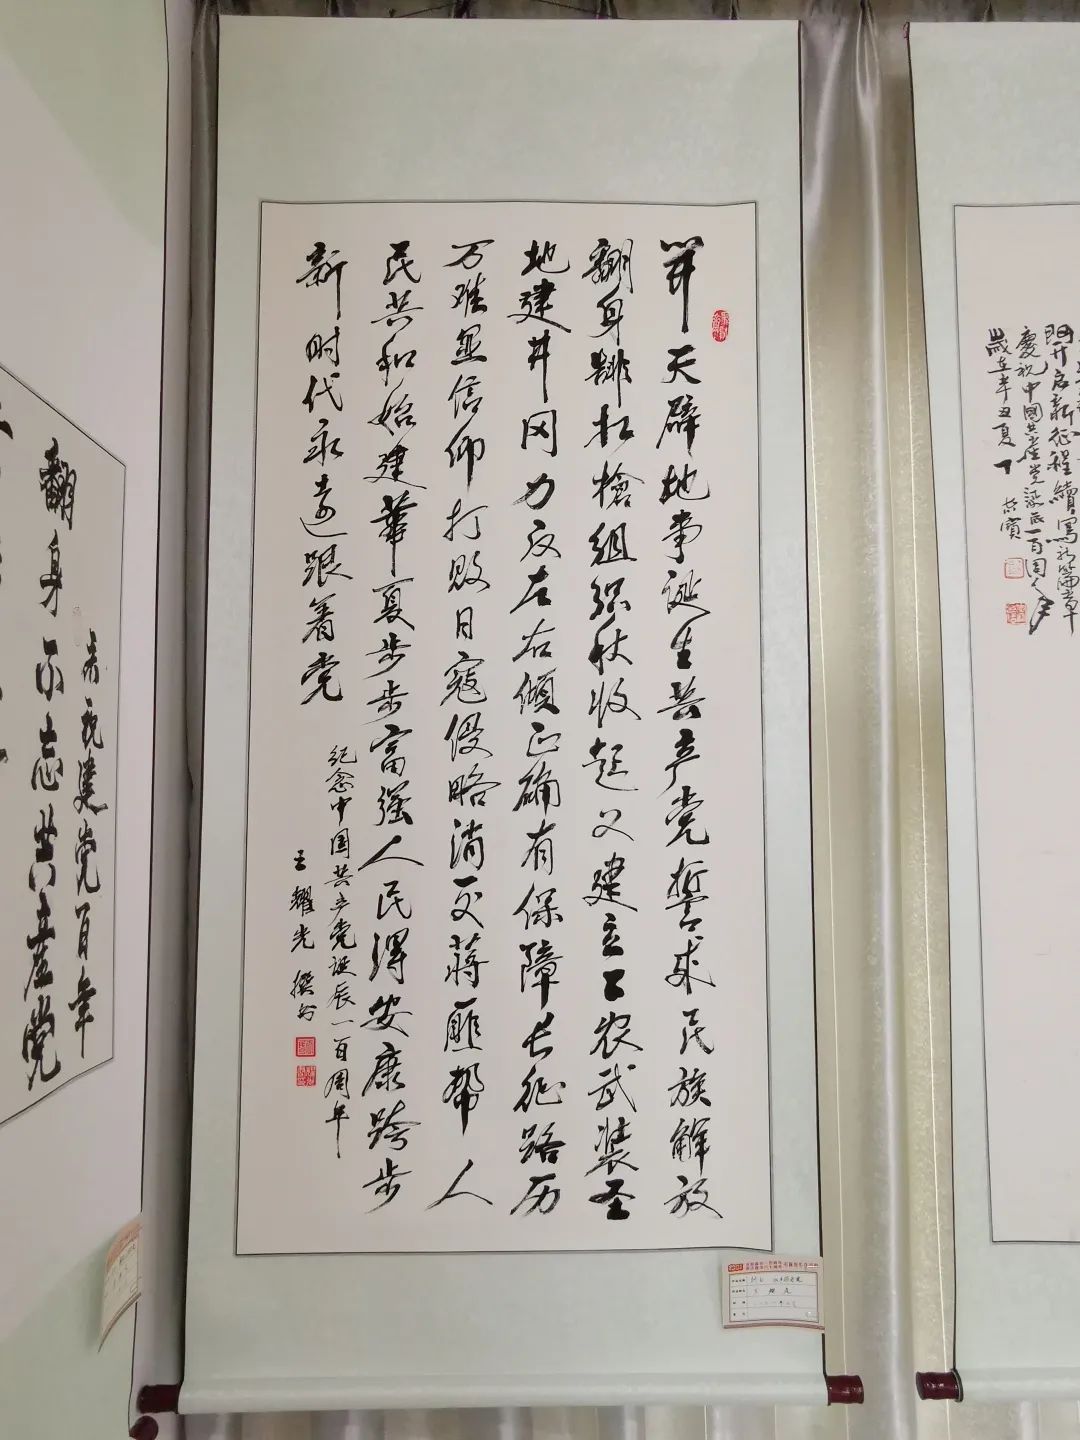 开天辟地事诞生共产党誓求民族解放
翻身缚扛槍组织秋收起义建立工农武装圣
地建井冈力反左右倾正确有保障长征路历
万难显信仰打败日寇侵略消灭蒋匪帮人
民共和始建華夏步步富强人民得安康跨步
新时代永远跟着党
纪念中国共产党诞辰一百周年
王耀光撰书
開启新征程續寫新篇章
慶祝中國共產党誕辰一百周年
歲在辛丑夏
翻身不忘共產党
慶祝建党百年